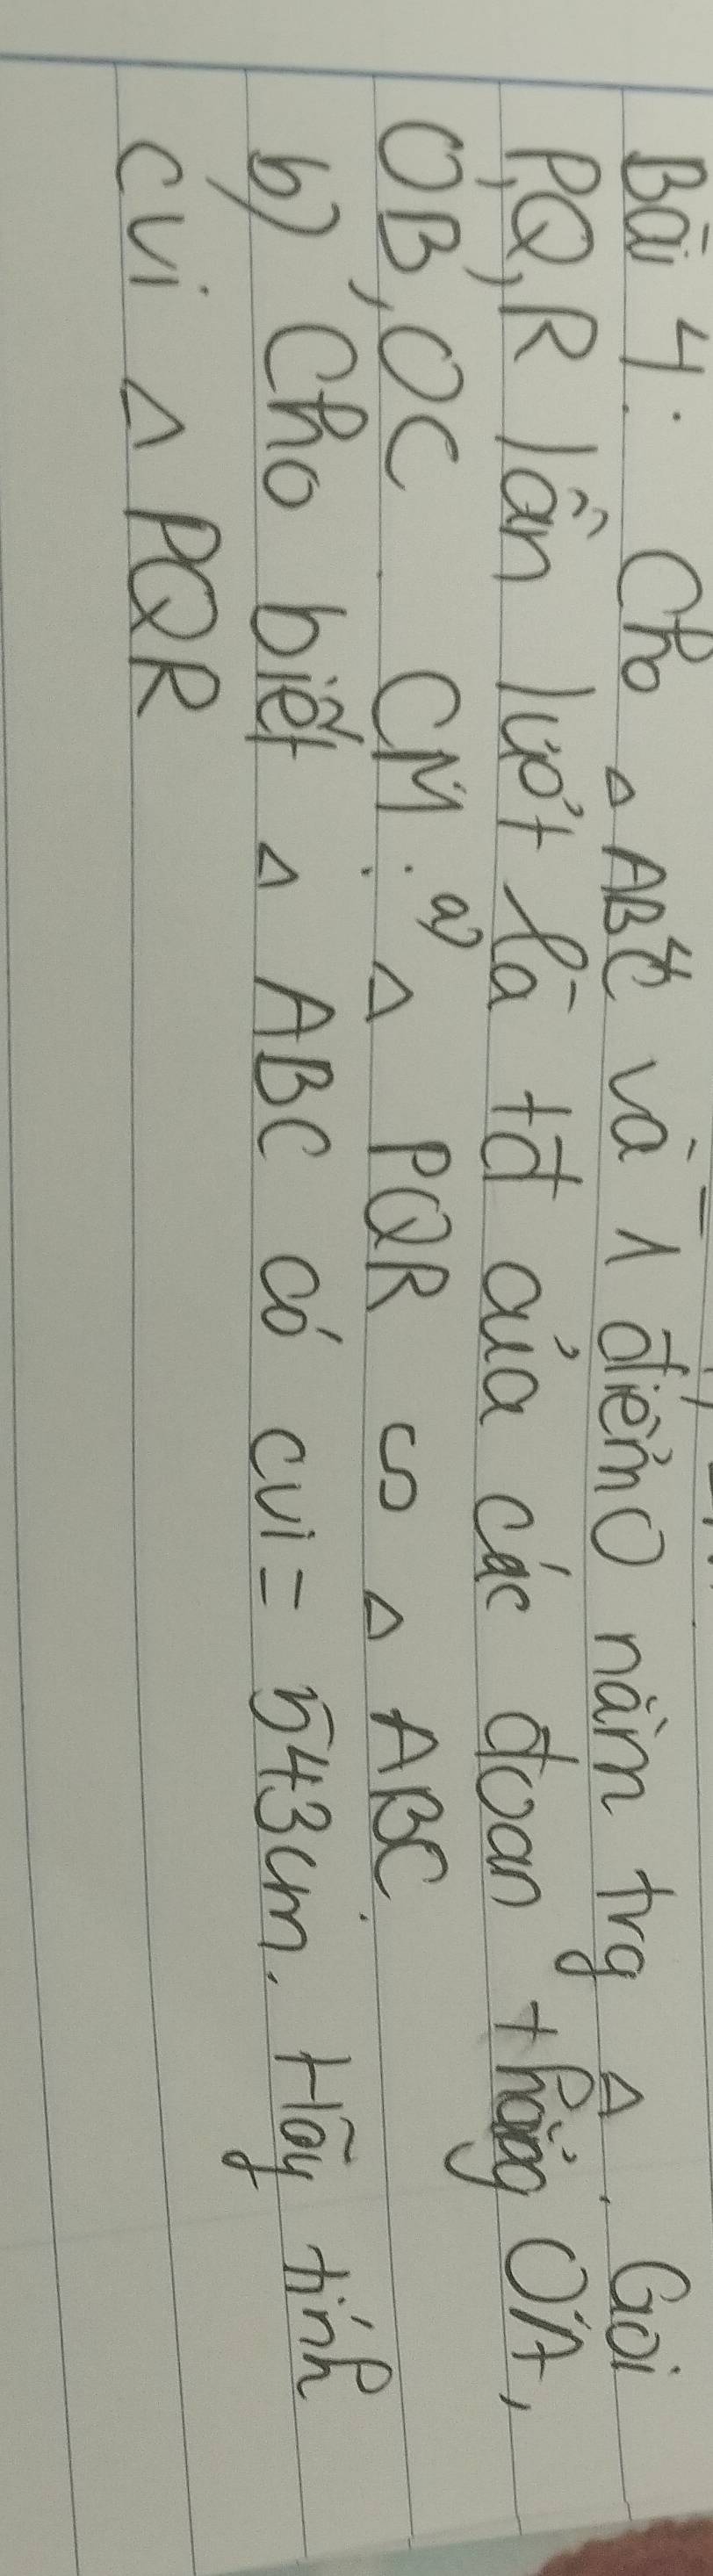 Bài 4: Cho △ ABC và 1 điểm O nằm trg △. Gọi
P,Q,R lần lượt là tđ của các đoạn thẳng OA,
OB, OC. CM: a) △ PQR ∽ △ ABC.
b) Cho biết △ ABC có cvi = 543cm. Hãy tính
cvi △ PQR